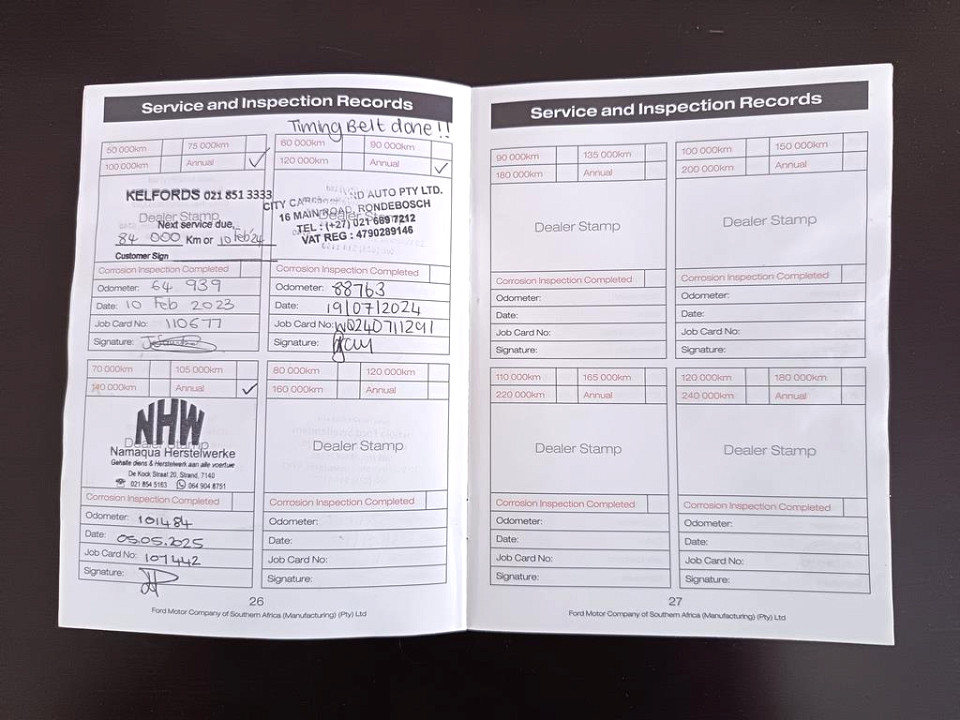 Service and Inspection Records
Timing Belt done!!
50 000km 75 000km
100 000km Annual ✓
KELFORDS 021 851 3333
Dealer Stamp
Next service due,
84 000 Km or 10 Feb 24
Customer Sign
Corrosion Inspection Completed
Odometer: 64 939
Date: 10 Feb 2023
Job Card No: 110677
Signature:
60 000km 90 000km
120 000km Annual ✓
CITY CAR ND AUTO PTY LTD.
16 MAIN ROAD, RONDEBOSCH
Dealer Stamp
TEL : (+27) 021 689 7212
VAT REG : 4790289146
Corrosion Inspection Completed
Odometer: 88763
Date: 19/07/2024
Job Card No:
Signature:
70 000km 105 000km
140 000km Annual ✓
NHW
Dealer Stamp
Namaqua Herstelwerke
Gehalle diens & Herstelwerk aan alle voertuie
De Kock Straat 20, Strand, 7140
021 854 5163 064 904 8751
Corrosion Inspection Completed
Odometer: 101484
Date: 05.05.2025
Job Card No: 107442
Signature:
80 000km 120 000km
160 000km Annual
Dealer Stamp
Corrosion Inspection Completed
Odometer:
Date:
Job Card No:
Signature:
26
Ford Motor Company of Southern Africa (Manufacturing) (Pty) Ltd
Service and Inspection Records
90 000km 135 000km
180 000km Annual
Dealer Stamp
Corrosion Inspection Completed
Odometer:
Date:
Job Card No:
Signature:
100 000km 150 000km
200 000km Annual
Dealer Stamp
Corrosion Inspection Completed
Odometer:
Date:
Job Card No:
Signature:
110 000km 165 000km
220 000km Annual
Dealer Stamp
Corrosion Inspection Completed
Odometer:
Date:
Job Card No:
Signature:
120 000km 180 000km
240 000km Annual
Dealer Stamp
Corrosion Inspection Completed
Odometer:
Date:
Job Card No:
Signature:
27
Ford Motor Company of Southern Africa (Manufacturing) (Pty) Ltd